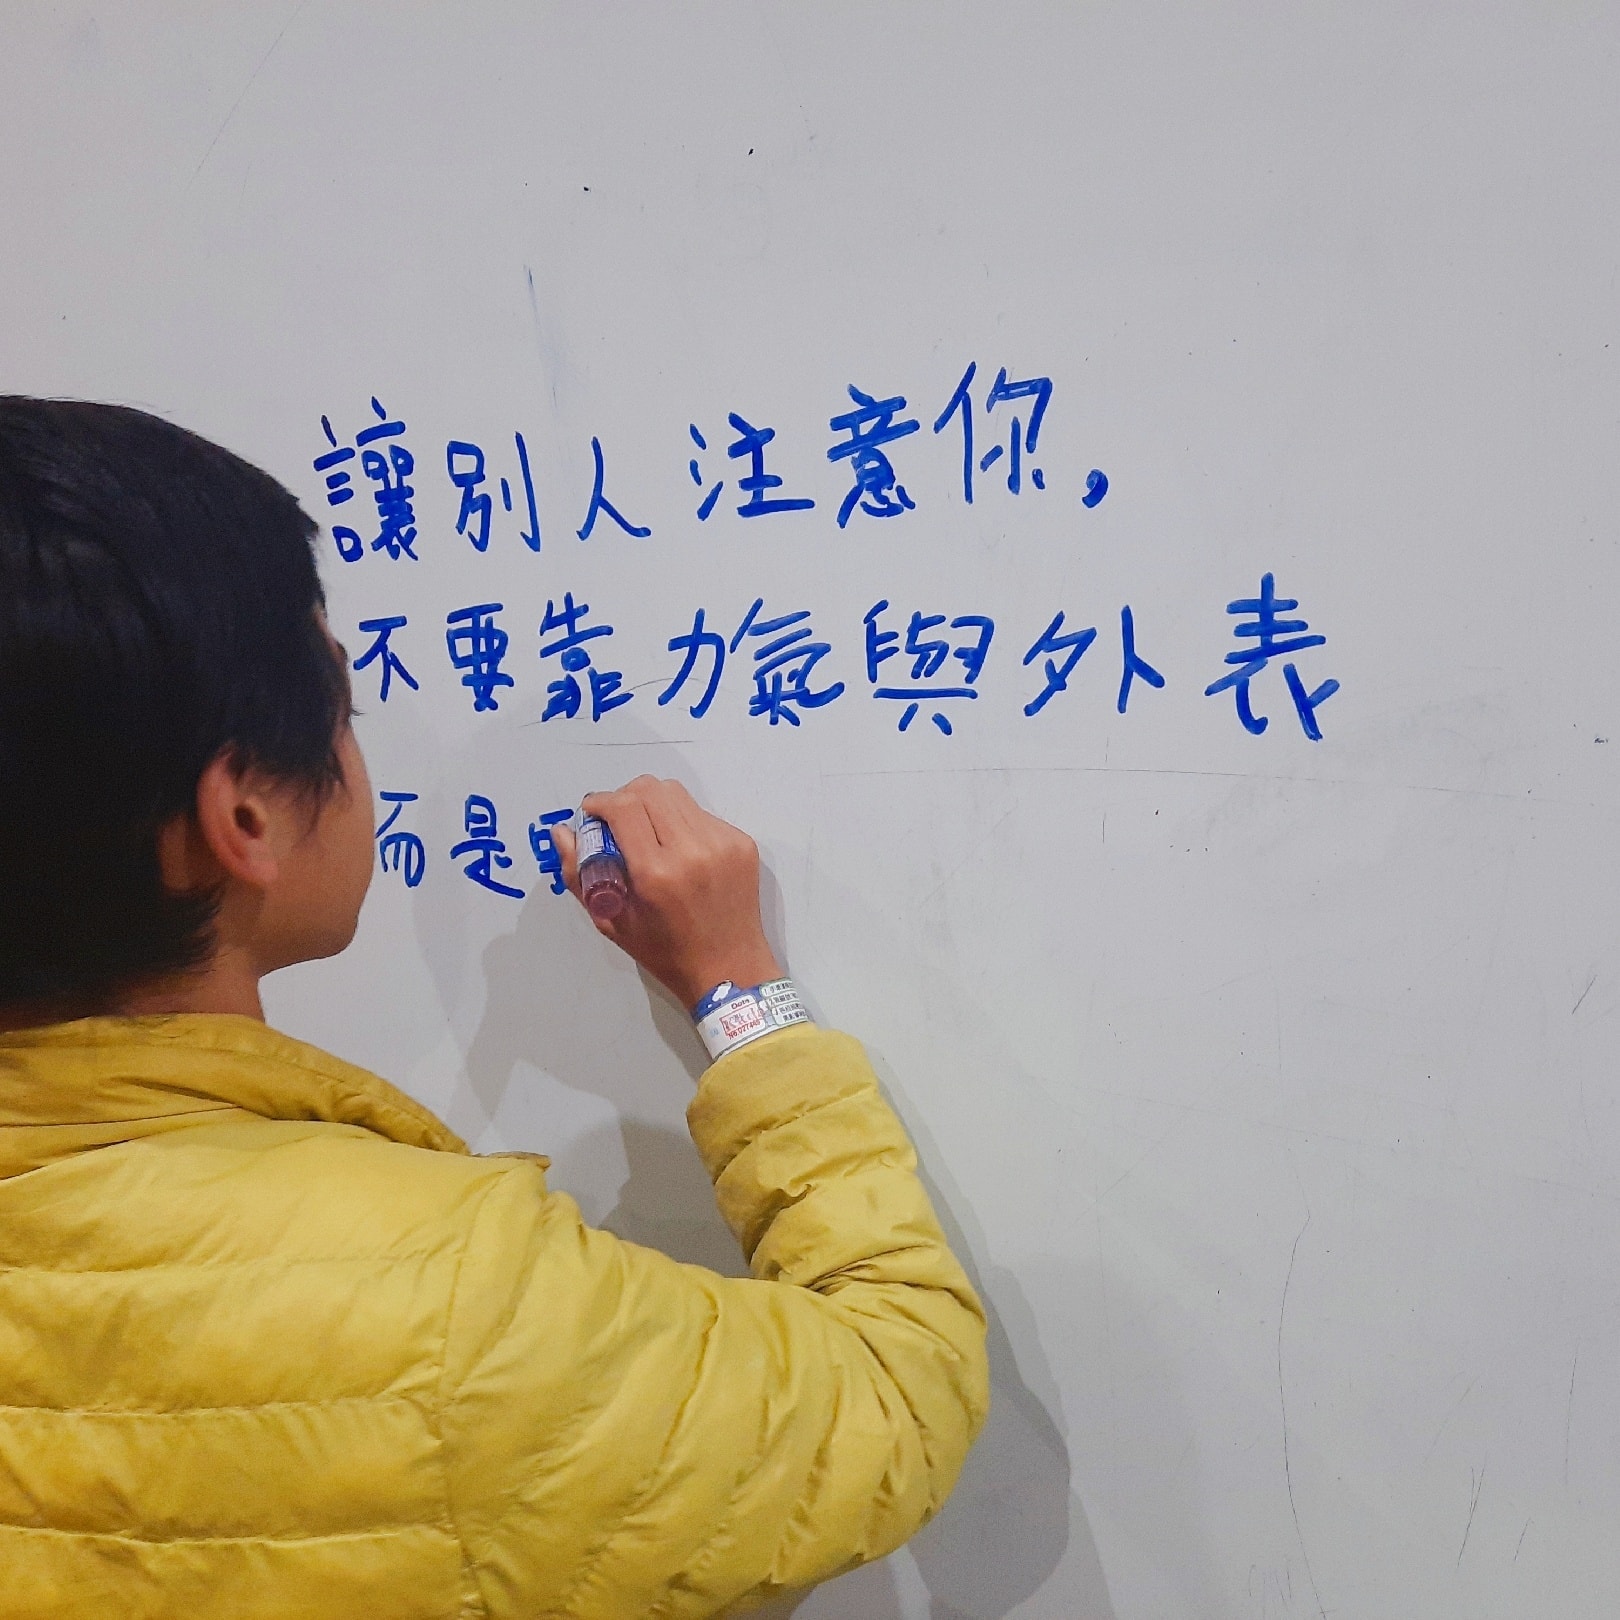 讓別人注意你，
不要靠力氣與外表
而是要
Date
№027465